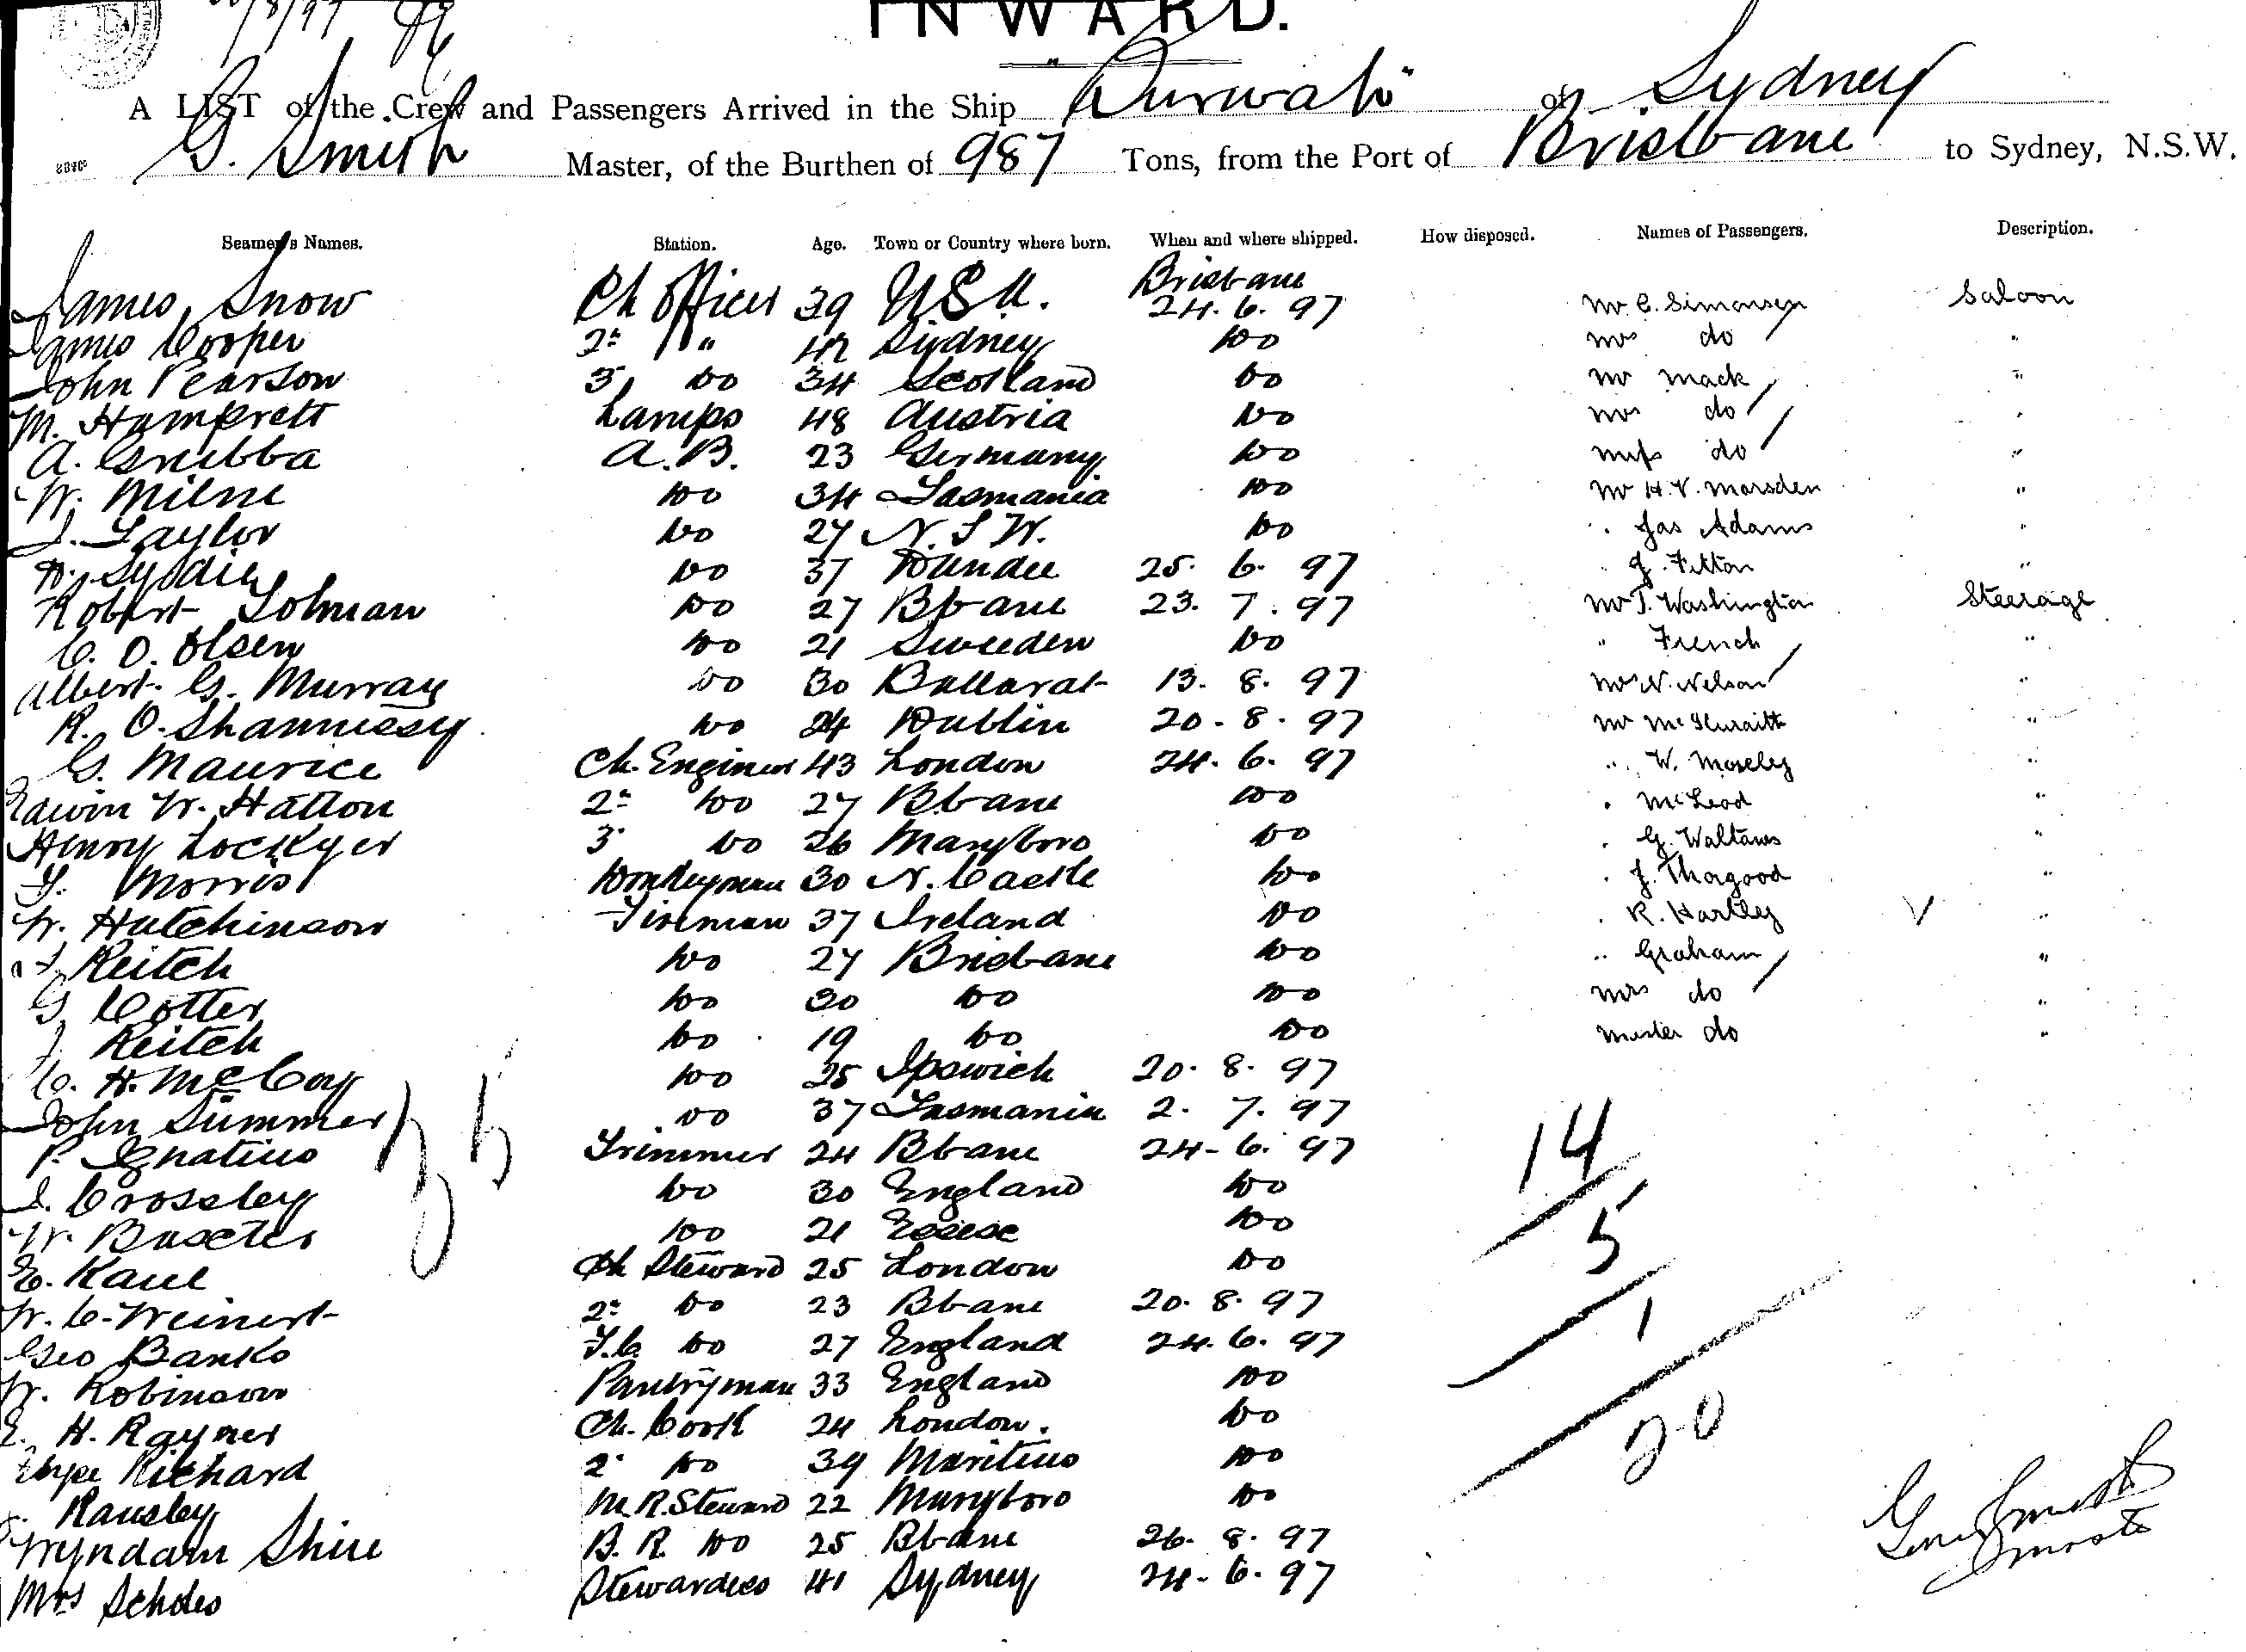 INWARD.
A LIST of the Crew and Passengers Arrived in the Ship "Burwah" of Sydney
G. Smith Master, of the Burthen of 987 Tons, from the Port of Brisbane to Sydney, N.S.W.
Seamen's Names. Station. Age. Town or Country where born. When and where shipped. How disposed. Names of Passengers. Description.
James Snow Ch Officer 39 U.S.A. Brisbane 24.6.97 Mr C. Simonsen Saloon
James Cooper 2nd " 42 Sydney Do Mrs do "
John Pearson 3 Do 34 Scotland Do Mr Mack "
M. Hamprett Lamps 48 Austria Do Mrs do "
A. Grubba A.B. 23 Germany Do Miss do "
W. Milne Do 34 Tasmania Do Mr H.V. Marsden "
J. Taylor Do 27 N.S.W. Do " Jas Adams "
Do 37 Dundee 25.6.97 " J. Fitton "
Robert Do 27 Bbane 23.7.97 Mr T. Washington Steerage
C. O. Olsen Do 21 Sweeden Do " French "
Albert G. Murray Do 30 Ballarat 13.8.97 N. Nelson "
R. O. Shannessy Do 24 Dublin 20.8.97 Mr "
G. Maurice Ch. Engineer 43 London 24.6.97 " W. Moseley "
Edwin W. Hatton 2nd Do 27 Bbane Do " McLeod "
Henry Lockyer 3 Do 26 Maryboro Do " G. "
Morris Donkeyman 30 N. Castle Do " J. Thorgood "
W. Hutchinson Fireman 37 Ireland Do " R. Hartley "
Keitch Do 27 Brisbane Do " Graham "
G. Cotter Do 30 Do Do Mrs do "
J. Keitch Do 19 Do Do Master do "
C. H. McCoy Do 25 Ipswich 20.8.97
John Summer Do 37 Tasmania 2.7.97
P. Ignatius Trimmer 24 Bbane 24-6.97
J. Crossley Do 30 England Do
W. Baxter Do 21 Essex Do
E. Kaul Ch Steward 25 London Do
W. C. Weinert 2nd Do 23 Bbane 20.8.97
Geo Banks F.C. Do 27 England 24.6.97
W. Robinson Pantryman 33 England Do
H. Rayner Ch. Cook 24 London. Do
Richard 2 Do 39 Maritius Do
Ransley M.R. Steward 22 Maryboro Do
Wyndam Shire B.R. Do 25 Bbane 26.8.97
Mrs Scholes Stewardess 41 Sydney 24-6.97
35
14
5
1
20
Geo Smith
Master